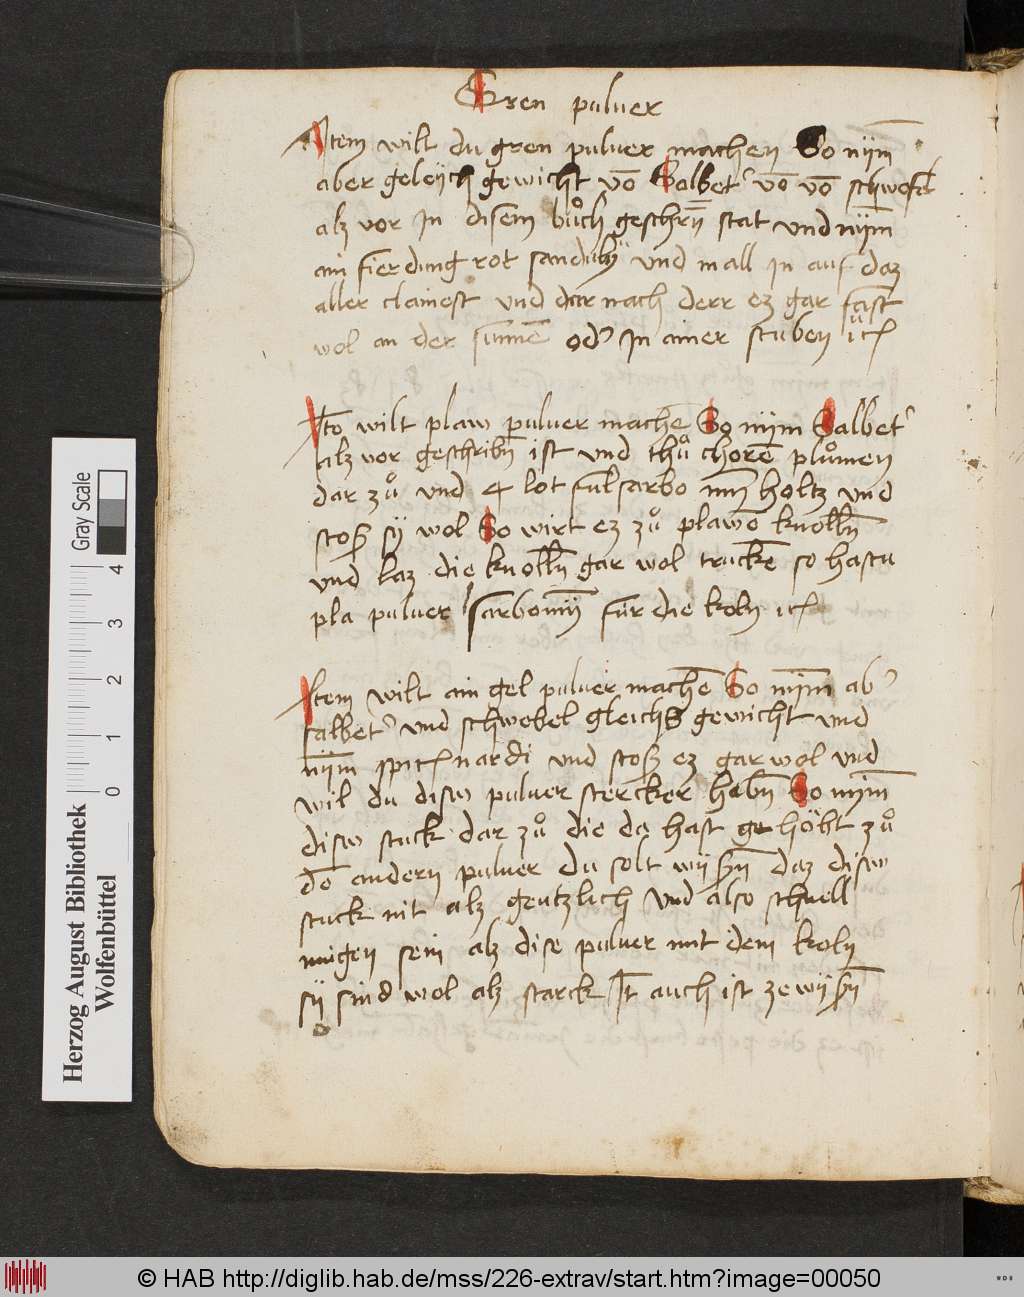 Gren puluer
Item wilt du gren puluer machen So nym̄
aber geleych gewicht vō Salbet' vō vō schwefel
alz vor In disem bůch geschrȳ stat vnd nym̄
ain fierdung rot sanduly vnd mall in auf daz
aller clainest vnd dar nach derr ez gar fast
wol an der sunnē od' In ainer stuben
Ito wilt plaw puluer machē So nym Salbet'
alz vor geschribn̄ ist vnd thů chorē plůmen
dar zů vnd 4 lot fulsarbo holtz vnd
stoß sy wol So wirt ez zů plawō knolln̄
vnd laz die knolln̄ gar wol truckē so hastu
pla puluer für die koln
Item wilt ain gel puluer machē So nym̄ ab'
salbet' vnd schwebel gleichs gewicht vnd
nym̄ spica nardi vnd stoß ez gar wol vnd
wil du disw puluer stercker habn̄ So nym̄
disw stuck dar zů die da hast gehöht zů
dē andern puluer du solt wyssn̄ daz disw
stuck nit alz gentzlich vnd also schnell
mügen sein alz dise puluer mit dem koln
sy sind wol alz starck It̄ auch ist ze wyssn̄
Herzog August Bibliothek
Wolfenbüttel
Gray Scale
0 1 2 3 4
© HAB http://diglib.hab.de/mss/226-extrav/start.htm?image=00050